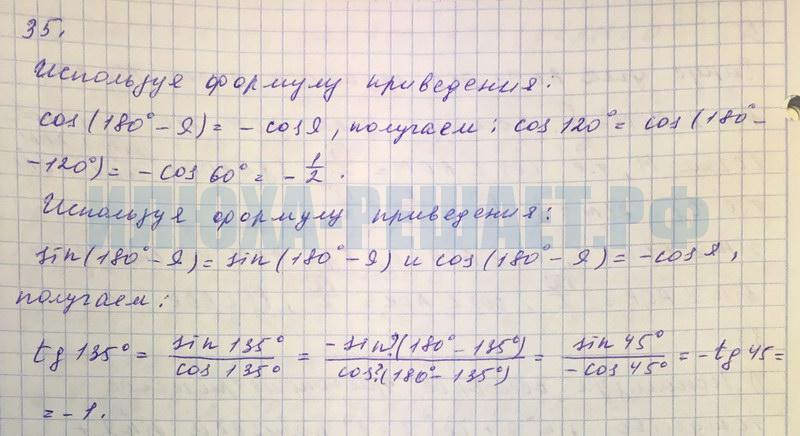 35.
Используя формулу приведения:
cos(180° - α) = - cos α, получаем: cos 120° = cos(180° -
- 120°) = - cos 60° = - 1/2.
ИПОХА-РЕШАЕТ.РФ
Используя формулу приведения:
sin(180° - α) = sin(180° - α) и cos(180° - α) = - cos α,
получаем:
tg 135° = sin 135° / cos 135° = -sin?(180° - 135°) / cos?(180° - 135°) = sin 45° / -cos 45° = - tg 45 =
= - 1.